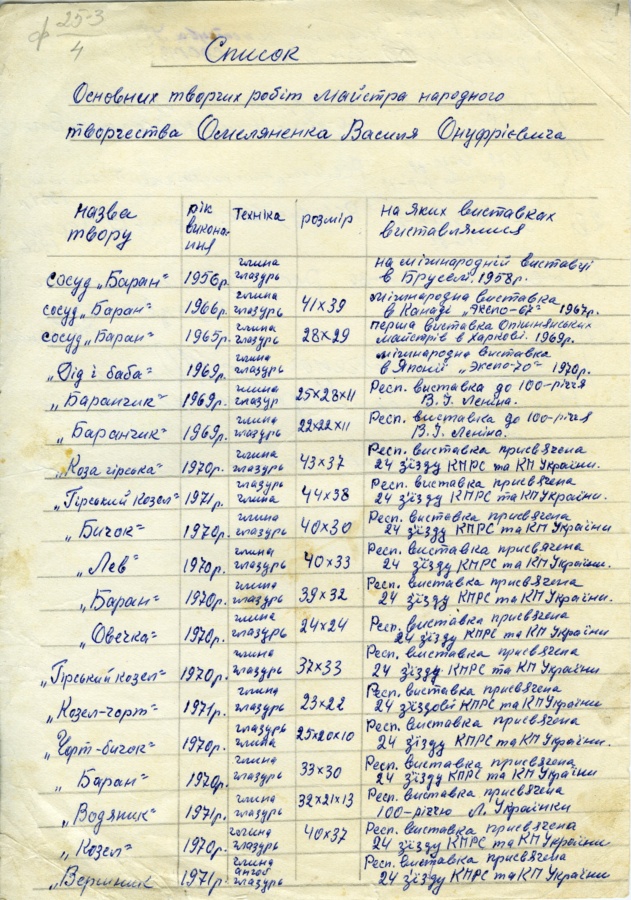 ф 25-3
4
1
Список
Основних творчих робіт майстра народного
творчества Омеляненка Василя Онуфрієвича
назва твору рік викона-ння техніка розмір на яких виставках виставлялися
сосуд „Баран“ 1956р. глина глазурь на міжнародній виставці в Бруселі. 1958р.
сосуд „Баран“ 1966р. глина глазурь 41×39 міжнародна виставка в Канаді „Экспо-67“ 1967р.
сосуд „Баран“ 1965р. глина глазурь 28×29 перша виставка Опішнянських майстрів в Харкові. 1969р.
„Дід і баба“ 1969р. глина глазурь міжнародна виставка в Японії „Экспо-70“ 1970р.
„Баранчик“ 1969р. глина глазур 25×28×11 Респ. виставка до 100-річчя В.І. Леніна.
„Баранчик“ 1969р. глина глазурь 22×22×11 Респ. виставка до 100-річчя В.І. Леніна.
„Коза гірська“ 1970р. глина глазурь 43×37 Респ. виставка присвячена 24 зїзду КПРС та КП України.
„Гірський козел“ 1971р. глазурь глина 44×38 Респ. виставка присвячена 24 зїзду КПРС та КП України.
„Бичок“ 1970р. глина глазурь 40×30 Респ. виставка присвячена 24 зїзду КПРС та КП України
„Лев“ 1970р. глина глазурь 40×33 Респ. виставка присвячена 24 зїзду КПРС та КП України.
„Баран“ 1970р. глина глазурь 39×32 Респ. виставка присвячена 24 зїзду КПРС та КП України.
„Овечка“ 1970р. глина глазурь 24×24 Респ. виставка присвячена 24 зїзду КПРС та КП України
„Гірський козел“ 1970р. глина глазурь 37×33 Респ. виставка присвячена 24 зїзду КПРС та КП України
„Козел-чорт“ 1971р. глина глазурь 23×22 Респ. виставка присвячена 24 зїздові КПРС та КП України
„Чорт-бичок“ 1970р. глазурь глина 25×20×10 Респ. виставка присвячена 24 зїзду КПРС та КП України.
„Баран“ 1970р. глина глазурь 33×30 Респ. виставка присвячена 24 зїзду КПРС та КП України
„Водяник“ 1971р. глина глазурь 32×21×13 Респ. виставка присвячена 100-річчю Л. Українки
„Козел“ 1970р. глина глазурь 40×37 Респ. виставка присвячена 24 зїзду КПРС та КП України.
„Вершник 1971р. глина ангоб глазурь Респ. виставка присвячена 24 зїзду КПРС та КП України.